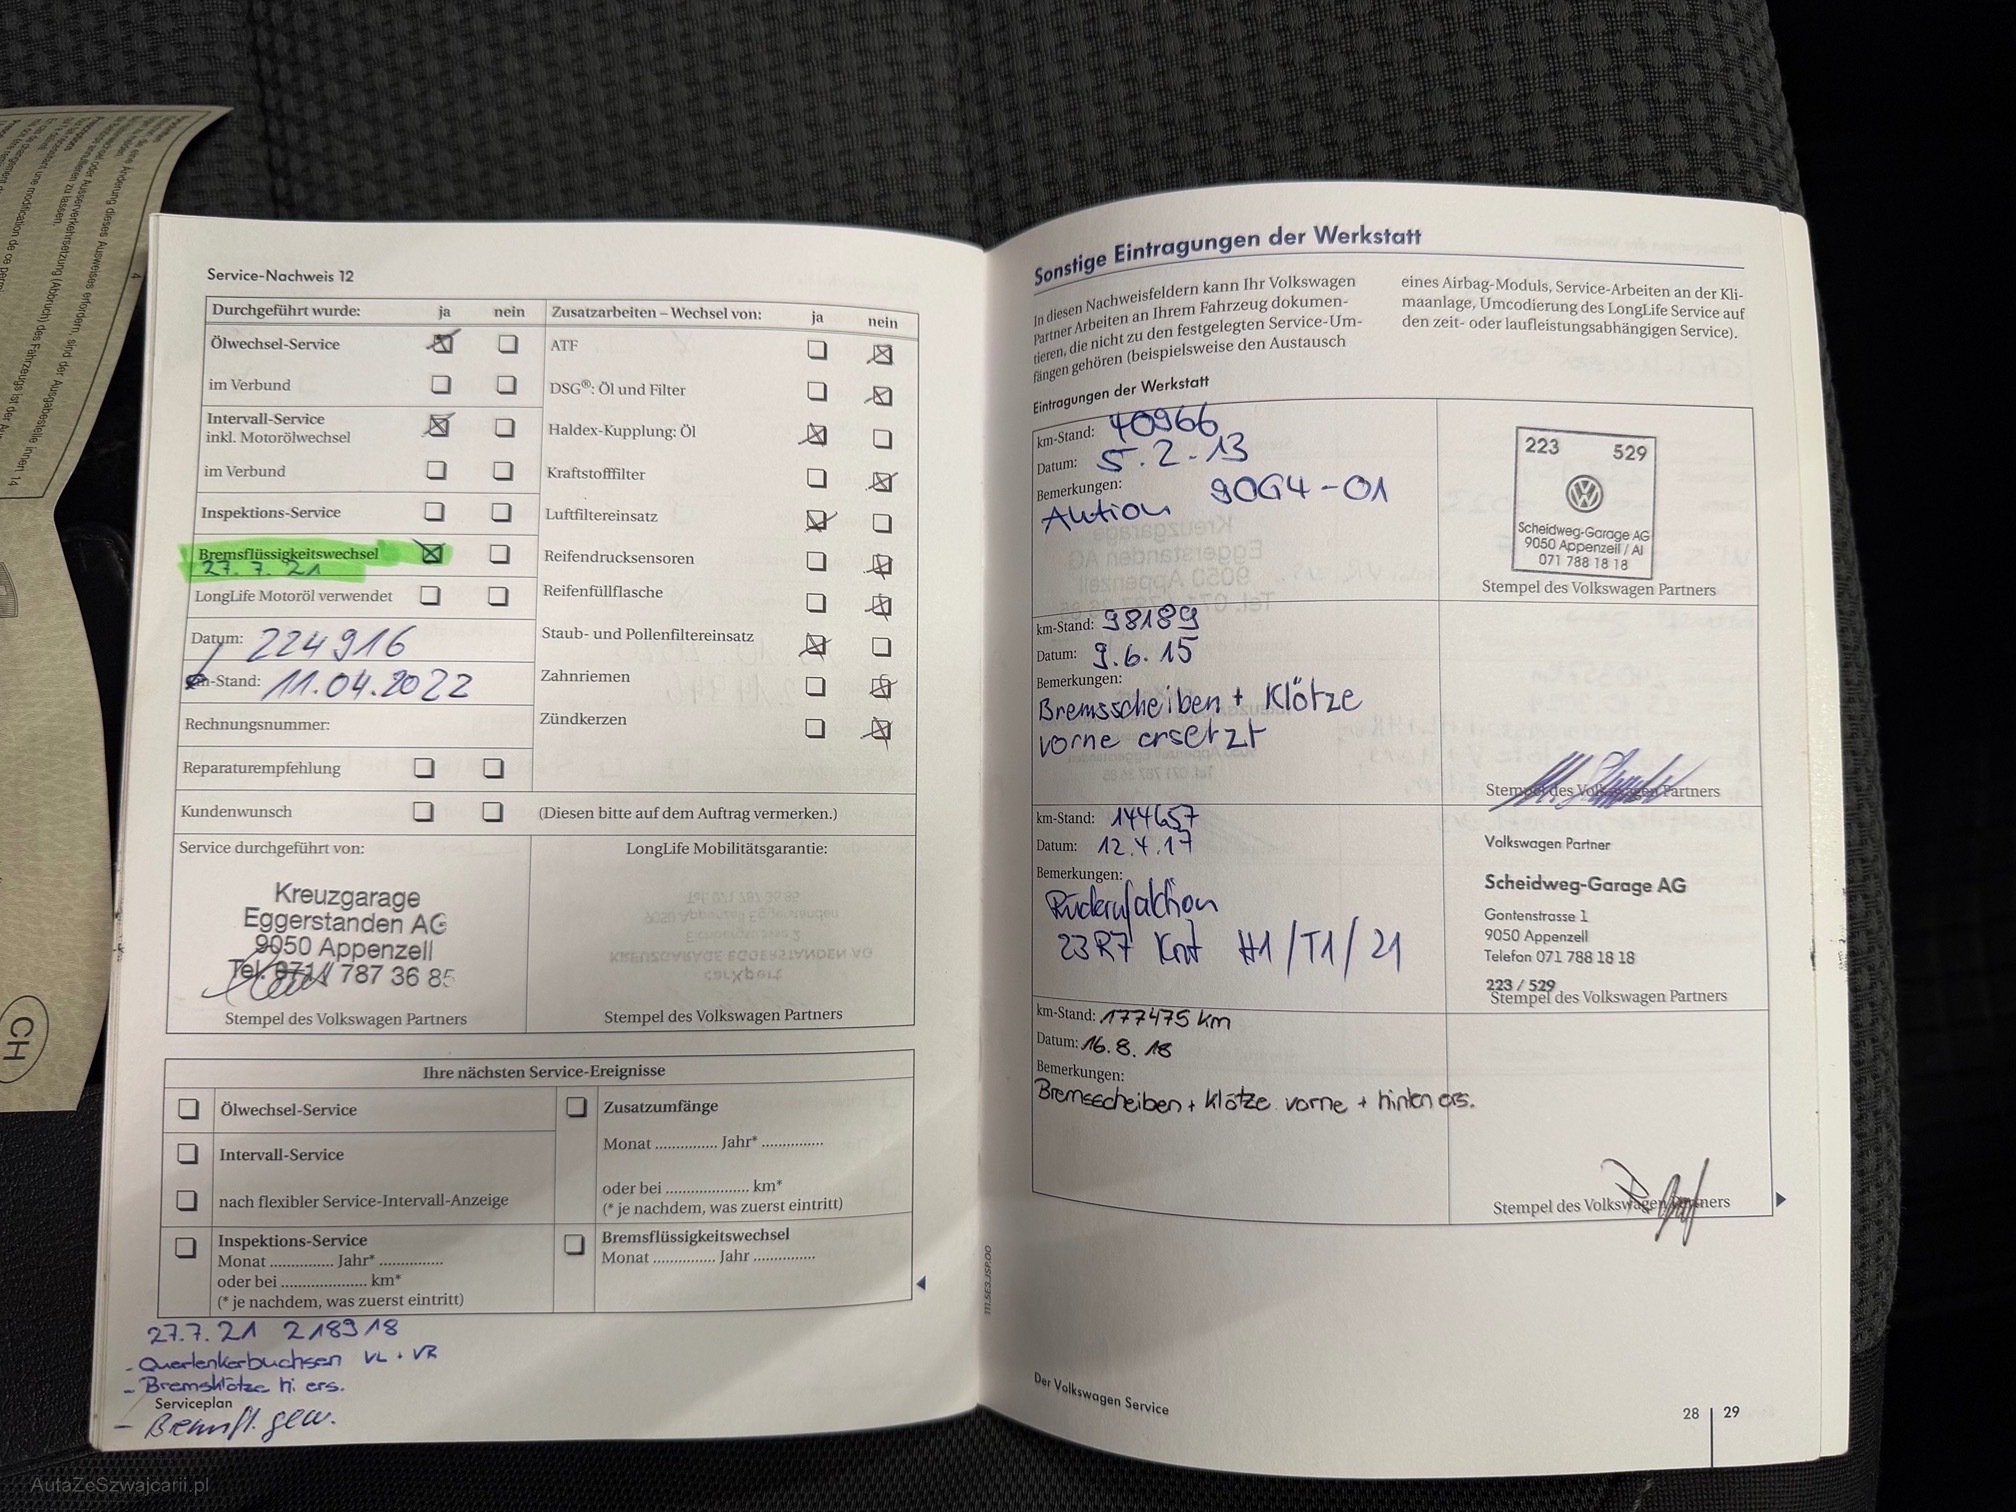 Service-Nachweis 12
Durchgeführt wurde: ja nein
Ölwechsel-Service
im Verbund
Intervall-Service
inkl. Motorölwechsel
im Verbund
Inspektions-Service
Bremsflüssigkeitswechsel
27.7.21
LongLife Motoröl verwendet
Datum: 224916
km-Stand: 11.04.2022
Rechnungsnummer:
Reparaturempfehlung
Kundenwunsch
Zusatzarbeiten – Wechsel von: ja nein
ATF
DSG®: Öl und Filter
Haldex-Kupplung: Öl
Kraftstofffilter
Luftfiltereinsatz
Reifendrucksensoren
Reifenfüllflasche
Staub- und Pollenfiltereinsatz
Zahnriemen
Zündkerzen
(Diesen bitte auf dem Auftrag vermerken.)
Service durchgeführt von:
Kreuzgarage
Eggerstanden AG
9050 Appenzell
Tel. 071 / 787 36 85
Stempel des Volkswagen Partners
LongLife Mobilitätsgarantie:
Stempel des Volkswagen Partners
Ihre nächsten Service-Ereignisse
Ölwechsel-Service
Intervall-Service
nach flexibler Service-Intervall-Anzeige
Inspektions-Service
Monat .............. Jahr* ..............
oder bei .................... km*
(* je nachdem, was zuerst eintritt)
Zusatzumfänge
Monat .............. Jahr* ..............
oder bei .................... km*
(* je nachdem, was zuerst eintritt)
Bremsflüssigkeitswechsel
Monat .............. Jahr ..............
27.7.21 218918
- Querlenkerbuchsen VL + VR
- Bremsklötze hi. ers.
Serviceplan
- Bremsfl. gew.
Sonstige Eintragungen der Werkstatt
In diesen Nachweisfeldern kann Ihr Volkswagen
Partner Arbeiten an Ihrem Fahrzeug dokumen-
tieren, die nicht zu den festgelegten Service-Um-
fängen gehören (beispielsweise den Austausch
eines Airbag-Moduls, Service-Arbeiten an der Kli-
maanlage, Umcodierung des LongLife Service auf
den zeit- oder laufleistungsabhängigen Service).
Eintragungen der Werkstatt
km-Stand: 40966
Datum: 5.2.13
Bemerkungen: 90G4-01
Aktion
223 529
Scheidweg-Garage AG
9050 Appenzell / AI
071 788 18 18
Stempel des Volkswagen Partners
km-Stand: 98189
Datum: 9.6.15
Bemerkungen:
Bremsscheiben + Klötze
vorne ersetzt
Stempel des Volkswagen Partners
km-Stand: 144657
Datum: 12.4.17
Bemerkungen:
Rückrufaktion
23R7 Krit #1/T1/21
Volkswagen Partner
Scheidweg-Garage AG
Gontenstrasse 1
9050 Appenzell
Telefon 071 788 18 18
223 / 529
Stempel des Volkswagen Partners
km-Stand: 177475 km
Datum: 16.8.18
Bemerkungen:
Bremsscheiben + Klötze vorne + hinten ers.
Stempel des Volkswagen Partners
111.5E3.JSP.00
Der Volkswagen Service
28 | 29
CH
AutaZeSzwajcarii.pl